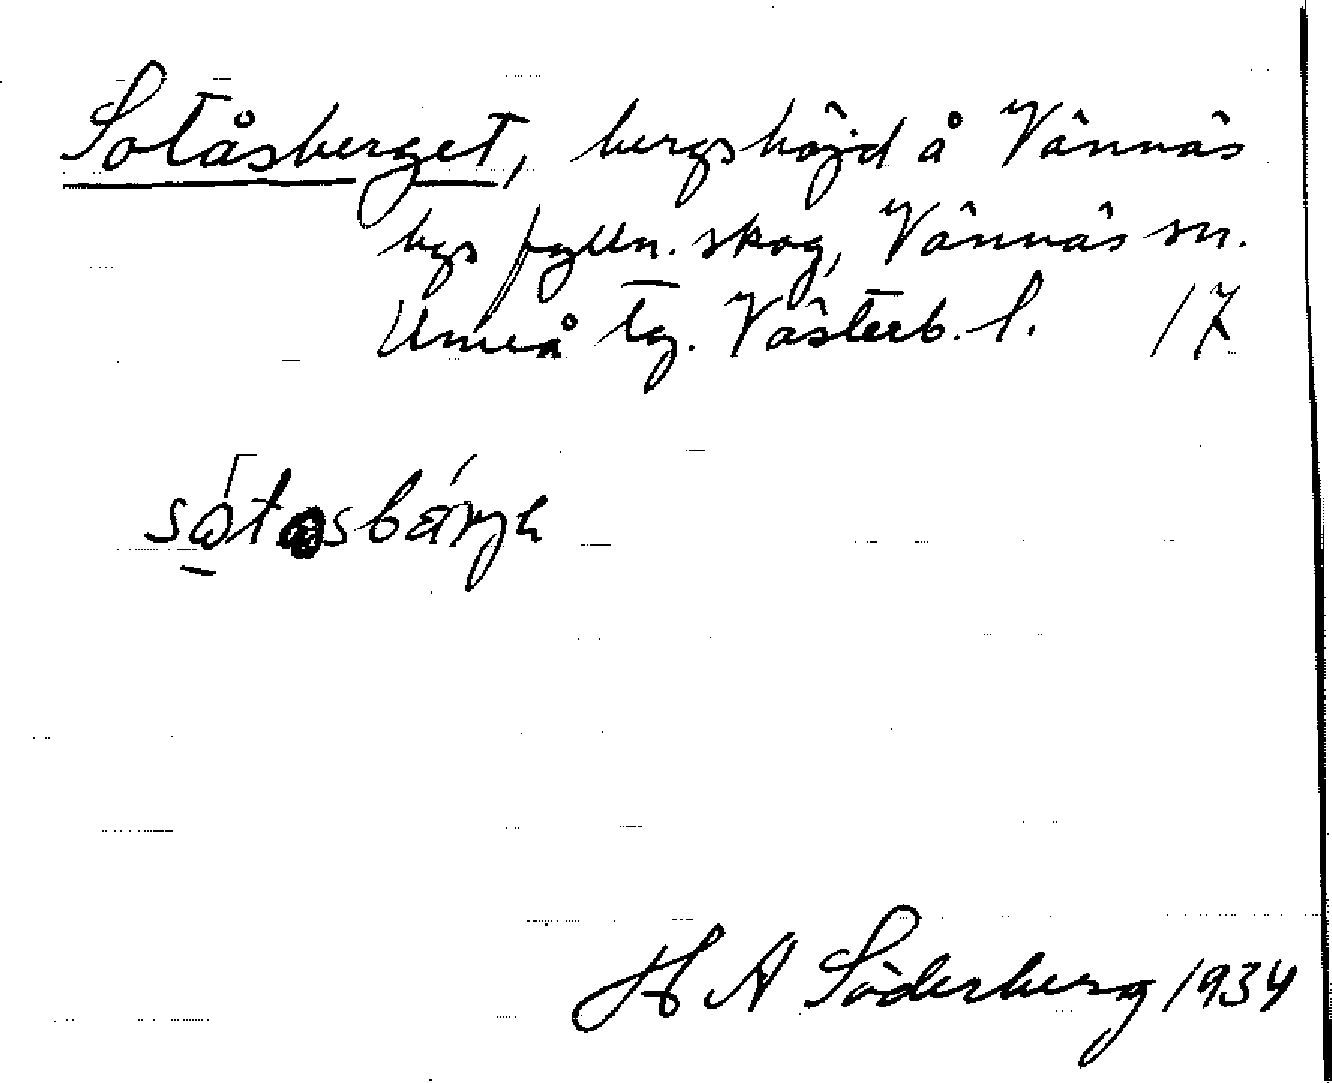 Sotåsberget, bergshöjd å Vännäs
bys fylln. skog, Vännäs sn.
Umeå tg. Västerb. l. 17
H A Söderberg 1934